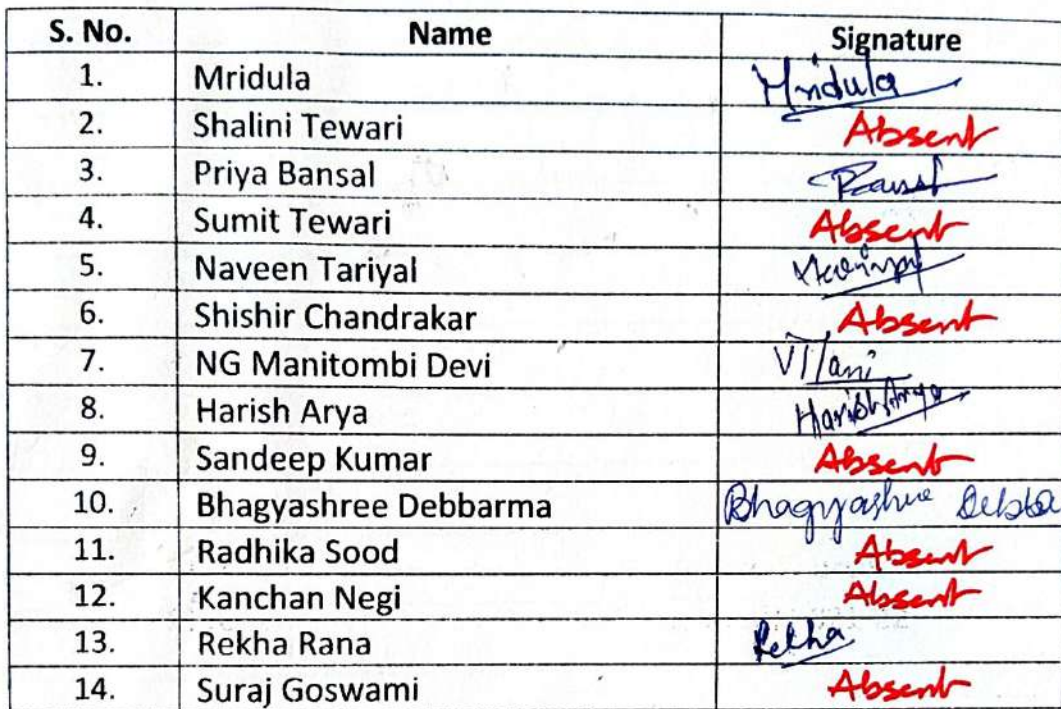 S. No. Name Signature
1. Mridula Mridula
2. Shalini Tewari Absent
3. Priya Bansal
4. Sumit Tewari Absent
5. Naveen Tariyal
6. Shishir Chandrakar Absent
7. NG Manitombi Devi
8. Harish Arya Harish Arya
9. Sandeep Kumar Absent
10. Bhagyashree Debbarma Bhagyashree
11. Radhika Sood Absent
12. Kanchan Negi Absent
13. Rekha Rana Rekha
14. Suraj Goswami Absent